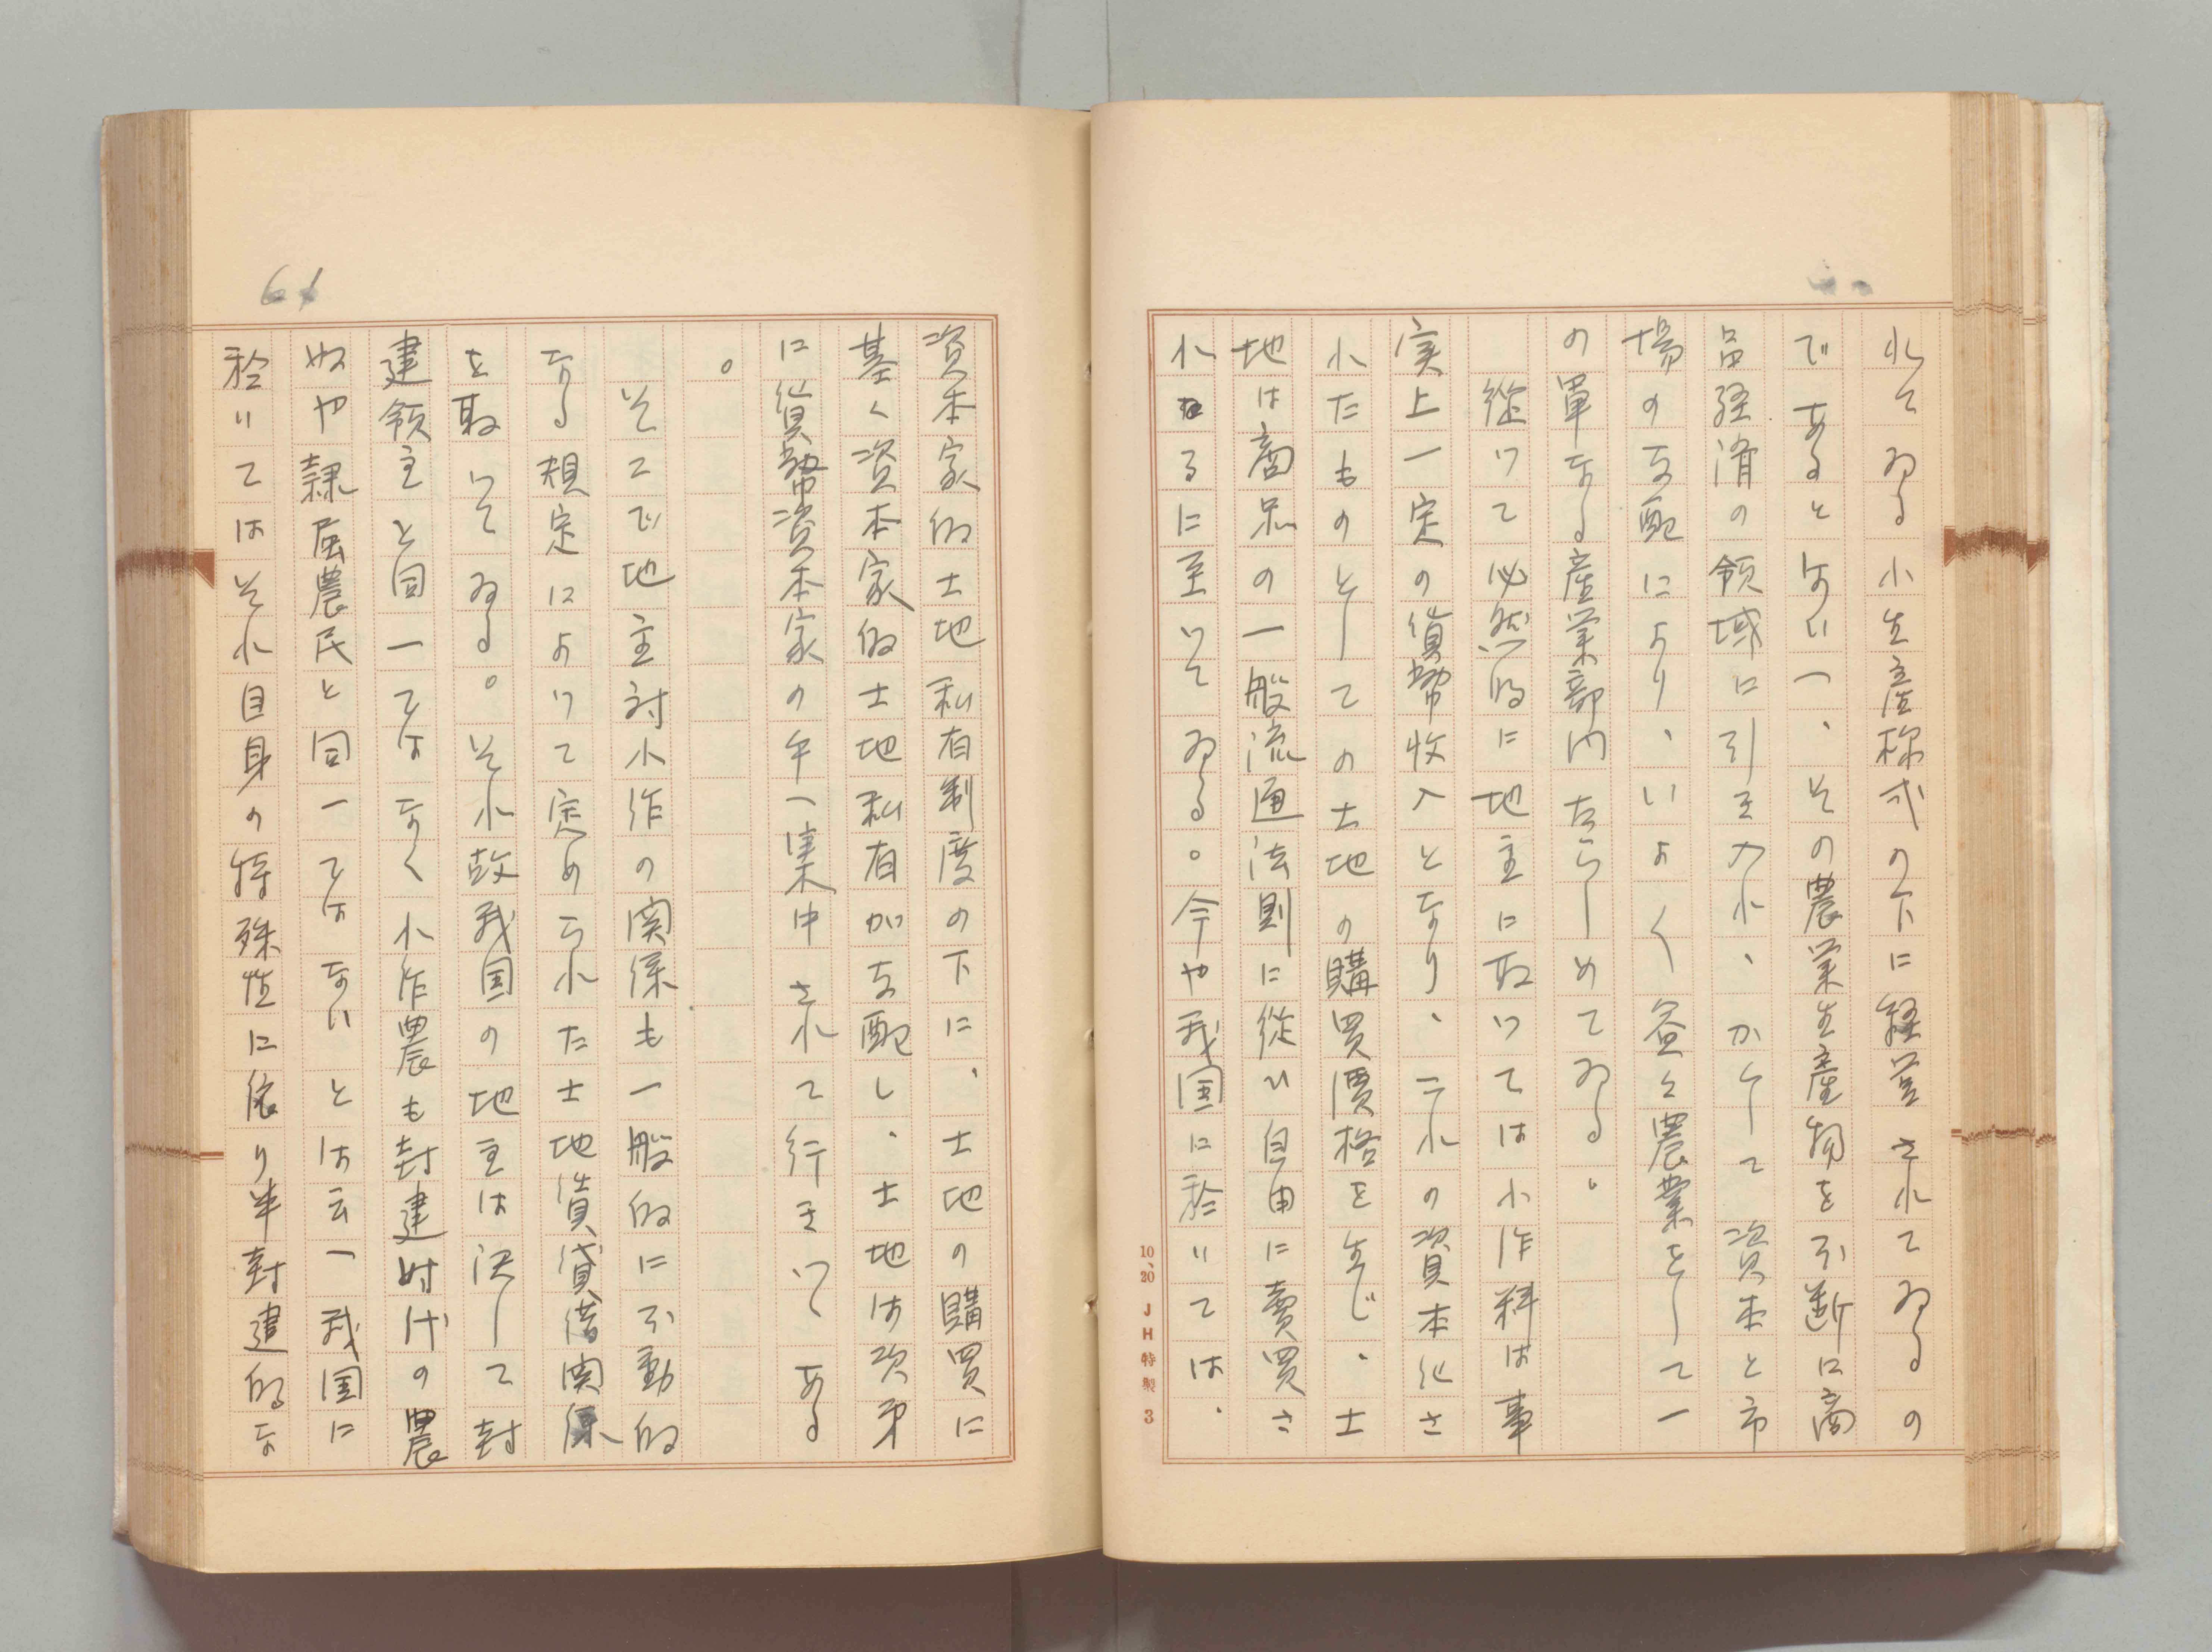 れてゐる小生産様式の下に経営されてゐるの
であるとはいへ、その農業生産物を不断に商
品経済の領域に引き入れ、かくして資本と市
場の支配により、いよ〱益々農業をして一
の単なる産業部門たらしめてゐる。
従つて必然的に地主に取つては小作料は事
実上一定の貨幣收入となり、これの資本化さ
れたものとしての土地の購買價格を生じ、土
地は商品の一般流通法則に従ひ自由に賣買さ
れるに至つてゐる。今や我国に於いては、
10、20 JH特製 3
61
資本家的土地私有制度の下に、土地の購買に
基く資本家的土地私有が支配し、土地は次第
に貨幣資本家の手へ集中されて行きつゝある
。
そこで地主対小作の関係も一般的に不動的
なる規定によつて定められた土地賃貸借関係
を取つてゐる。それ故我国の地主は決して封
建領主と同一ではなく小作農も封建时代の農
奴や隷属農民と同一ではないとは云へ我国に
於いてはそれ自身の特殊性に依り半封建的な